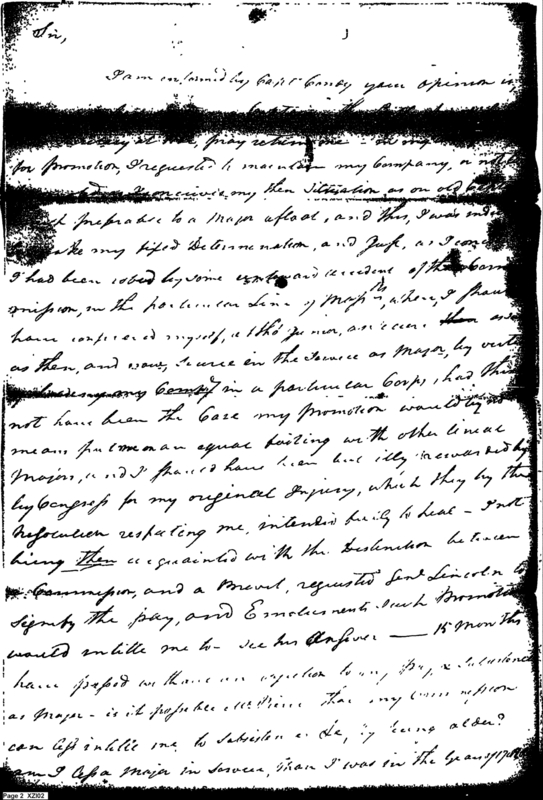 Sir,
I am informed by Capt Candy your Opinion is,
pray return me - in my
for Promotion, I requested to maintain my Company, or not
my then Situation, as an old Capt
preferable to a Major afloat, and this, I was
my fixed Determination, and Just, as I
I had been robed by some untoward accident of the Com
mission, in the particular Line of Majrs, where, I should
have considered myself, altho' Junior, as secure then as
as then, and now, secure in the Service as Major, by virtue
my Compy in a particular Corps, had this
not have been the Case my Promotion would by no
means put me on an equal footing with other lineal
Majors, and I should have been but illy rewarded by
by Congress for my original Injury, which they by the
Resolution respecting me, intended fully to heal - I not
being then acquainted with the Destinction between
a Commission, and a Brevet, requested Genl Lincoln to
signify the pay, and Emoluments such Promotion
would intitle me to - see his Answer — 15 Months
have passed without an objection to my Pay, & Subsistence
as Major - is it possible Mr Pierce that my Commission
can less intitle me to Subsistence &c, by being older?
am I less a Major in Service, than I was in the Year
Page 2 XZI02